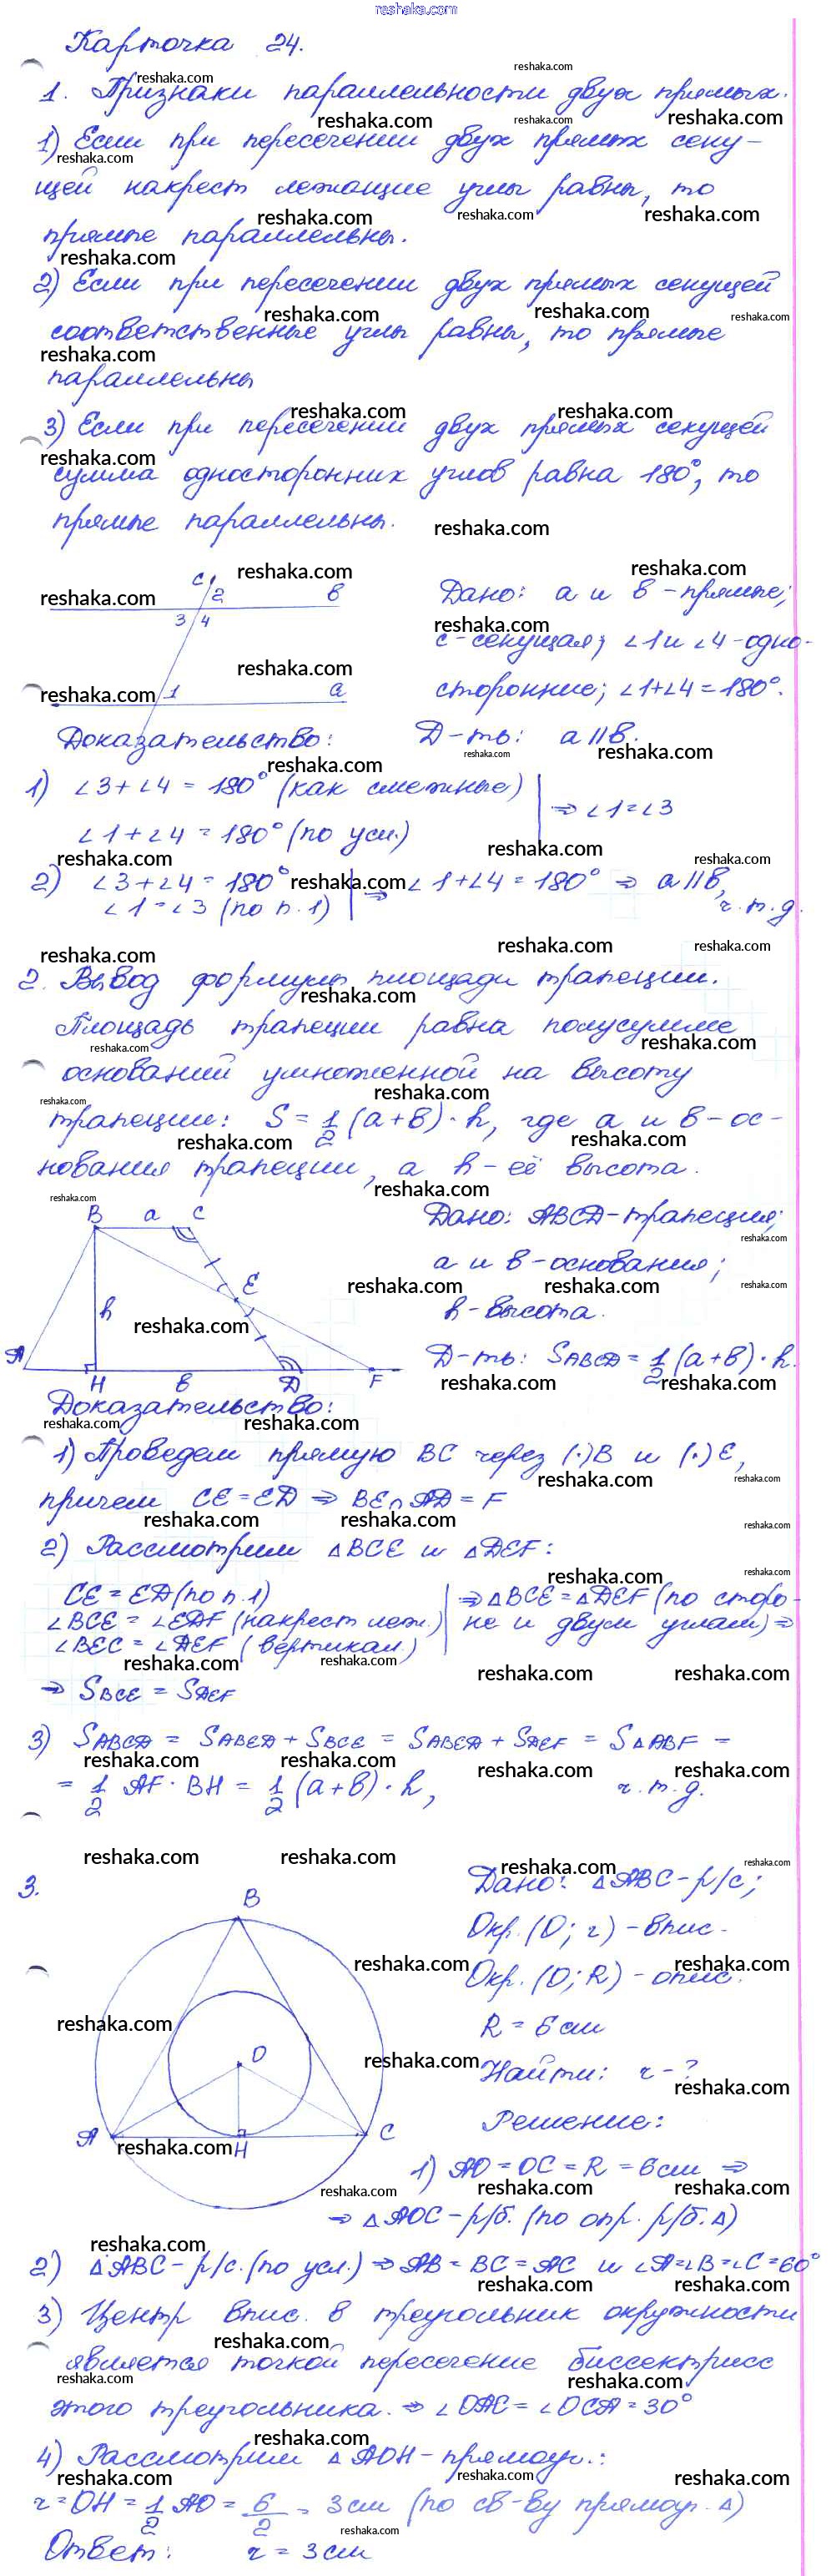 reshaka.com
Карточка 24.
1. Признаки параллельности двух прямых.
1) Если при пересечении двух прямых секу-
щей накрест лежащие углы равны, то
прямые параллельны.
2) Если при пересечении двух прямых секущей
соответственные углы равны, то прямые
параллельны
3) Если при пересечении двух прямых секущей
сумма односторонних углов равна 180°, то
прямые параллельны.
c 2 в
3 4
1 a
Дано: a и в - прямые;
с-секущая; ∠1 и ∠4 - одно-
сторонние; ∠1+∠4 = 180°.
Д-ть: a || в.
Доказательство:
1) ∠3+∠4 = 180° (как смежные)
∠1+∠4 = 180° (по усл.) ⇒ ∠1=∠3
2) ∠3+∠4 = 180°
∠1=∠3 (по п.1) ⇒ ∠1+∠4 = 180° ⇒ a || в,
ч.т.д.
2. Вывод формулы площади трапеции.
Площадь трапеции равна полусумме
оснований умноженной на высоту
трапеции: S = 1/2 (a+в) · h, где a и в - ос-
нования трапеции, а h - её высота.
B a C
E
h
A H в D F
Дано: ABCD - трапеция;
a и в - основания;
h - высота.
Д-ть: SABCD = 1/2 (a+в) · h.
Доказательство:
1) Проведем прямую BC через (·)B и (·)E,
причем CE = ED ⇒ BE ∩ AD = F
2) Рассмотрим △BCE и △DEF:
CE = ED (по п.1)
∠BCE = ∠EDF (накрест леж.)
∠BEC = ∠DEF (вертикал.)
⇒ △BCE = △DEF (по сторо-
не и двум углам) ⇒
⇒ SBCE = SDEF
3) SABCD = SABED + SBCE = SABED + SDEF = S△ABF =
= 1/2 AF · BH = 1/2 (a+в) · h, ч.т.д.
3.
B
O
A H C
Дано: △ABC - р/с;
Окр. (O; r) - впис.
Окр. (O; R) - опис.
R = 6 см
Найти: r - ?
Решение:
1) AO = OC = R = 6 см ⇒
⇒ △AOC - р/б. (по опр. р/б. △)
2) △ABC - р/с. (по усл.) ⇒ AB = BC = AC и ∠A=∠B=∠C=60°
3) Центр впис. в треугольник окружности
является точкой пересечение биссектрисс
этого треугольника. ⇒ ∠OAC = ∠OCA = 30°
4) Рассмотрим △AOH - прямоуг.:
r = OH = 1/2 AO = 6/2 = 3 см (по св-ву прямоуг. △)
Ответ: r = 3 см